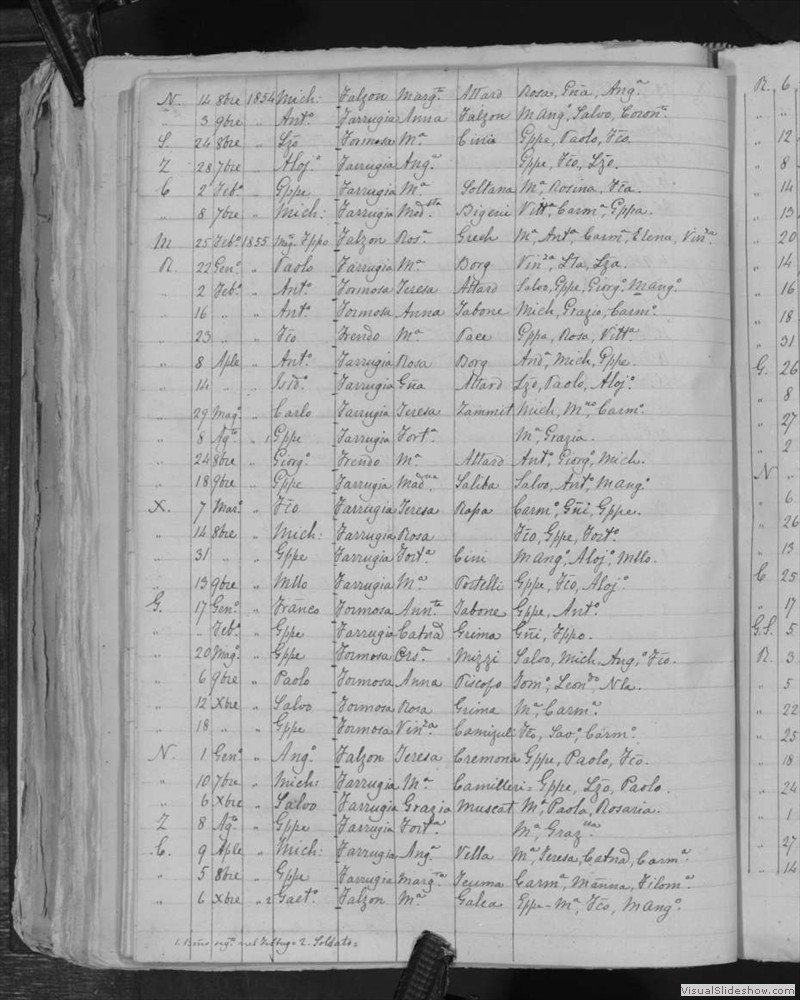 N. 14 8bre 1854 Mich: Falzon Margta Attard Rosa, Gña, Anga
" 3 9bre " Anto Farrugia Anna Falzon Mango, Salvo, Coronta
S. 24 8bre " Lzõ Formosa Ma Cinie Gppe, Paolo, Fcõ.
Z 28 7bre " Alojo Farrugia Anga Gppe, Fcõ, Lzõ.
C 2 Febo " Gppe Farrugia Ma Soltana Ma Rosina, Fca.
" 8 7bre " Mich: Farrugia Modsta Bigeni Vitta Carma Gppa.
M 25 Febo 1855 Falzon Rosa Grech Ma, Anta Carma, Elena, Vinza
R. 22 Geno " Paolo Farrugia Ma Borg Vinza, Lzã.
" 2 Febo " Anto Formosa Teresa Attard Salvo, Gppe, Giorgo, Mango
" 16 " " Anto Formosa Anna Tabone Mich, Grazio, Carmo
" 23 " " Fcõ Frendo Ma Pace Gppa, Rosa, Vitta
" 8 Aple " Anto Farrugia Rosa Borg Anda, Mich, Gppe.
" 14 " " Isido Farrugia Gña Attard Lzõ, Paolo, Alojo
" 29 Mago " Carlo Farrugia Teresa Zammit Mich, Mno, Carmo
" 8 Agto " 1 Gppe Farrugia Forta Ma Grazia.
" 24 8bre " Giorgo Frendo Ma Attard Anto, Giorgo, Mich.
" 18 9bre " Gppe Farrugia Madna Saliba Salvo, Anto, Mango
X. 7 Maro " Fcõ Farrugia Teresa Rapa Carmo, Gñi, Gppe.
" 14 8bre " Mich: Farrugia Rosa Fcõ, Gppe, Forto
" 31 " " Gppe Farrugia Forta Cini Mango, Alojo, Mllo.
" 13 9bre " Mllo Farrugia Ma Portelli Gppe, Fcõ, Alojo
G. 17 Geno " Franco Formosa Annta Tabone Gppe, Anto
" " Febo " Gppe Farrugia Catnã Grima Gñi, Fppo.
" 20 Mago " Gppe Formosa Orsa Mizzi Salvo, Mich, Ango, Fcõ.
" 6 9bre " Paolo Formosa Anna Piscopo Tomo, Leondo, Nla.
" 12 Xbre " Salvo Formosa Rosa Grima Ma, Carma
" 18 " " Gppe Formosa Vinza Camizuli Fcõ, Savo, Carmo
N. 1 Geno " Ango Falzon Teresa Cremona Gppe, Paolo, Fcõ.
" 10 7bre " Mich: Farrugia Ma Camilleri = Gppe, Lzõ, Paolo.
" 6 Xbre " Salvo Farrugia Grazia Muscat Ma, Paola, Rosaria.
Z 8 Agto " Gppe Farrugia Forta Ma, Grazna
C. 9 Aple " Mich: Farrugia Anga Vella Ma, Teresa, Catnã, Carma
" 5 8bre " Gppe Farrugia Margta Teuma Carma, Manna, Filoma
" 6 Xbre " 2 Gaeto Falzon Ma Galea Gppe-Ma, Fcõ, Mango
2. Soldato =
R. 6
" "
" 12
" 8
" 14
" 13
" 20
" 14
" 16
" 18
" 31
G. 26
" 8
" 27
" 2
N "
" 6
" 26
" 13
C. 25
" 17
G.S. 5
R. 3
" 5
" 22
" 25
" 18
" 24
" 1
" 27
" 14
VisualSlideshow.com